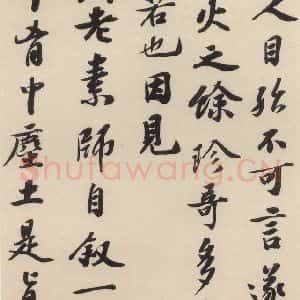 人目殆不可言遂
火之餘珍奇多
若也因見
老素師自叙一
中塵土是
Shufawang.CN